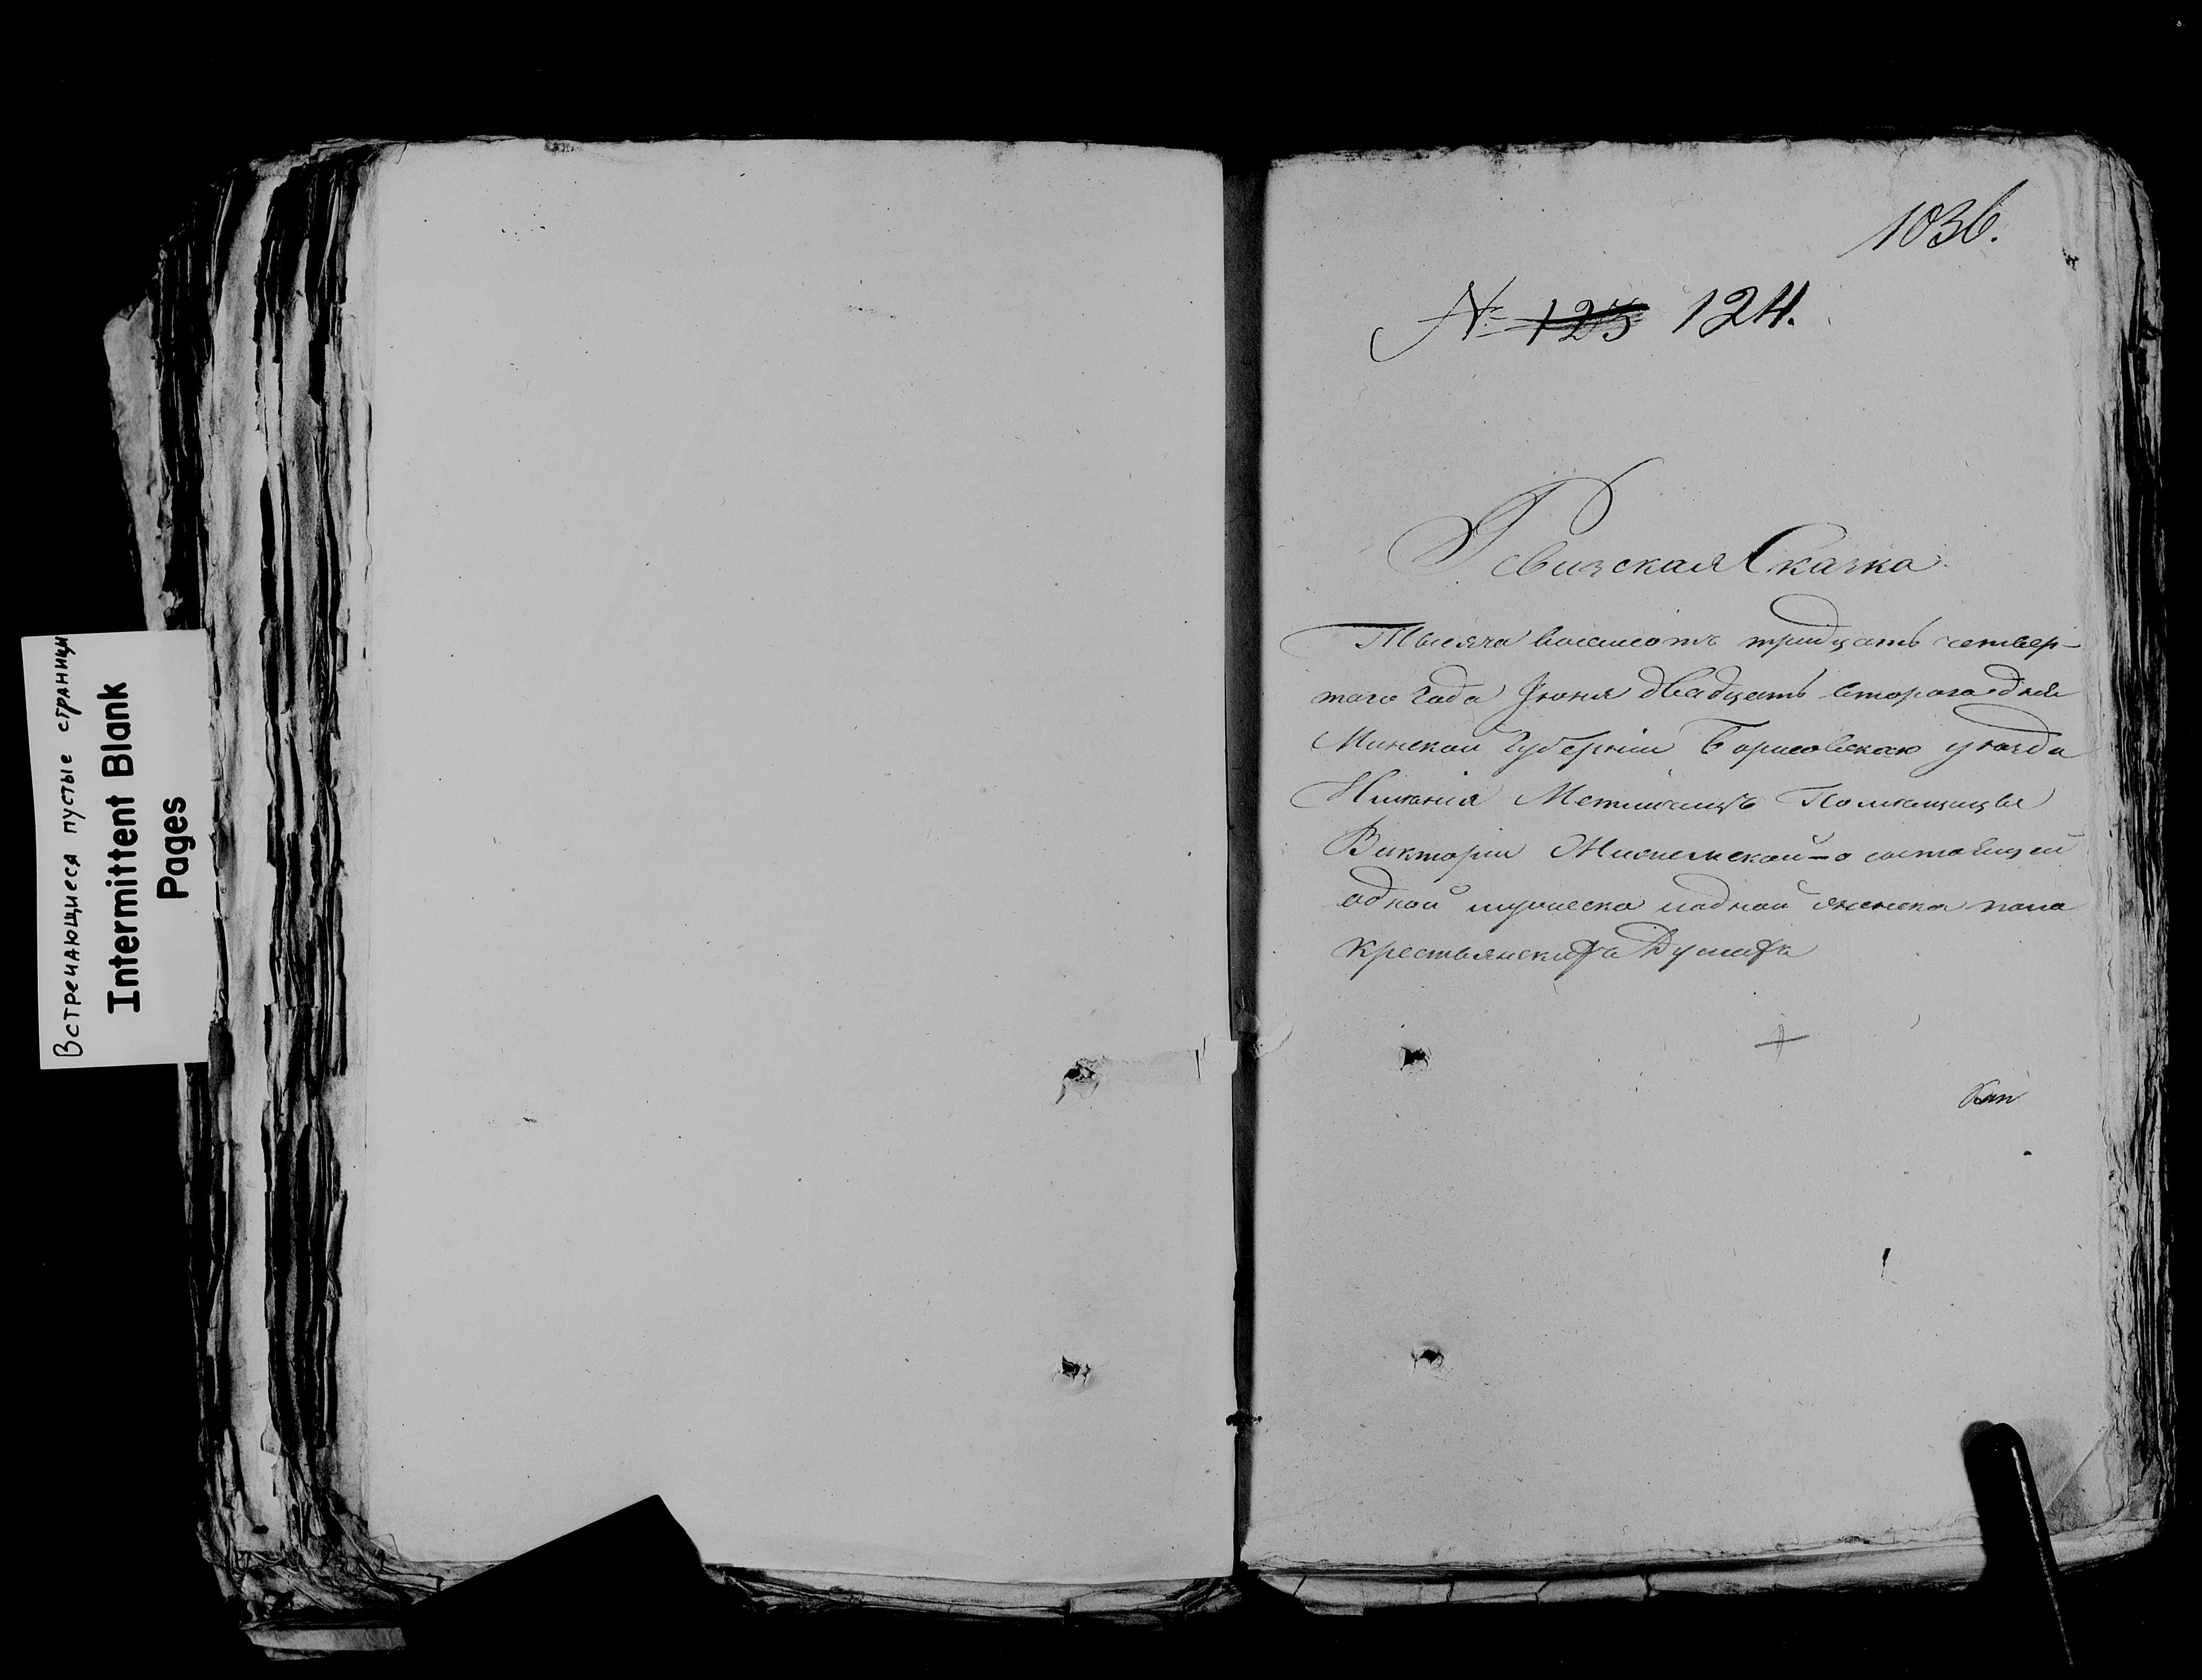 Встречающиеся пустые страницы
Intermittent Blank
Pages
1036.
№ 125 124.
Ревизская Сказка
Тысяча восемсотъ тридцать четвер-
таго года Іюня двадцать втораго дня
Минской Губерніи Борисовскаго уѣзда
Имѣнія Помѣщицы
Викторіи о состоящей
одной мужеска и одной женска пола
крестьянскихъ Душахъ